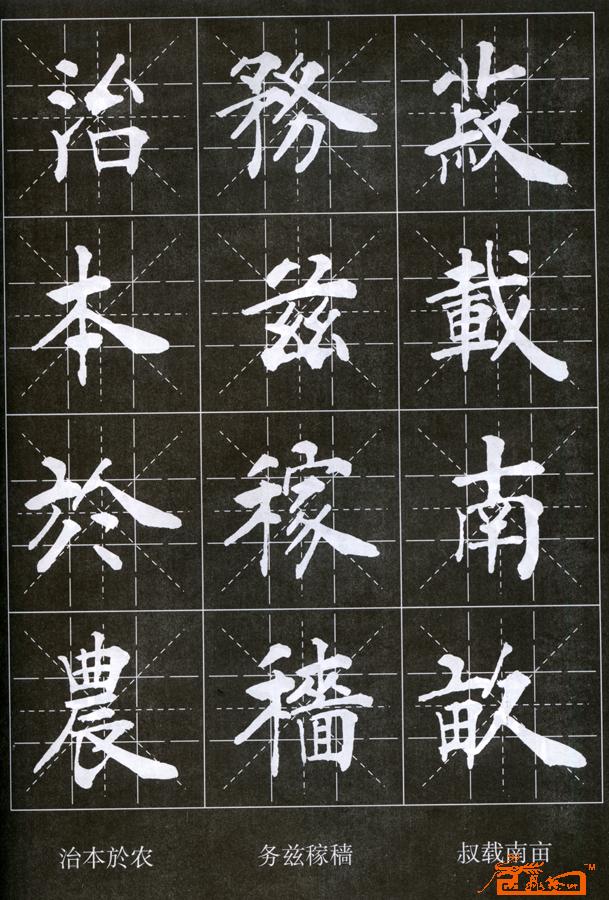 治本於農
務兹稼穡
菽載南畝
治本於农
务兹稼穑
叔载南亩
TM